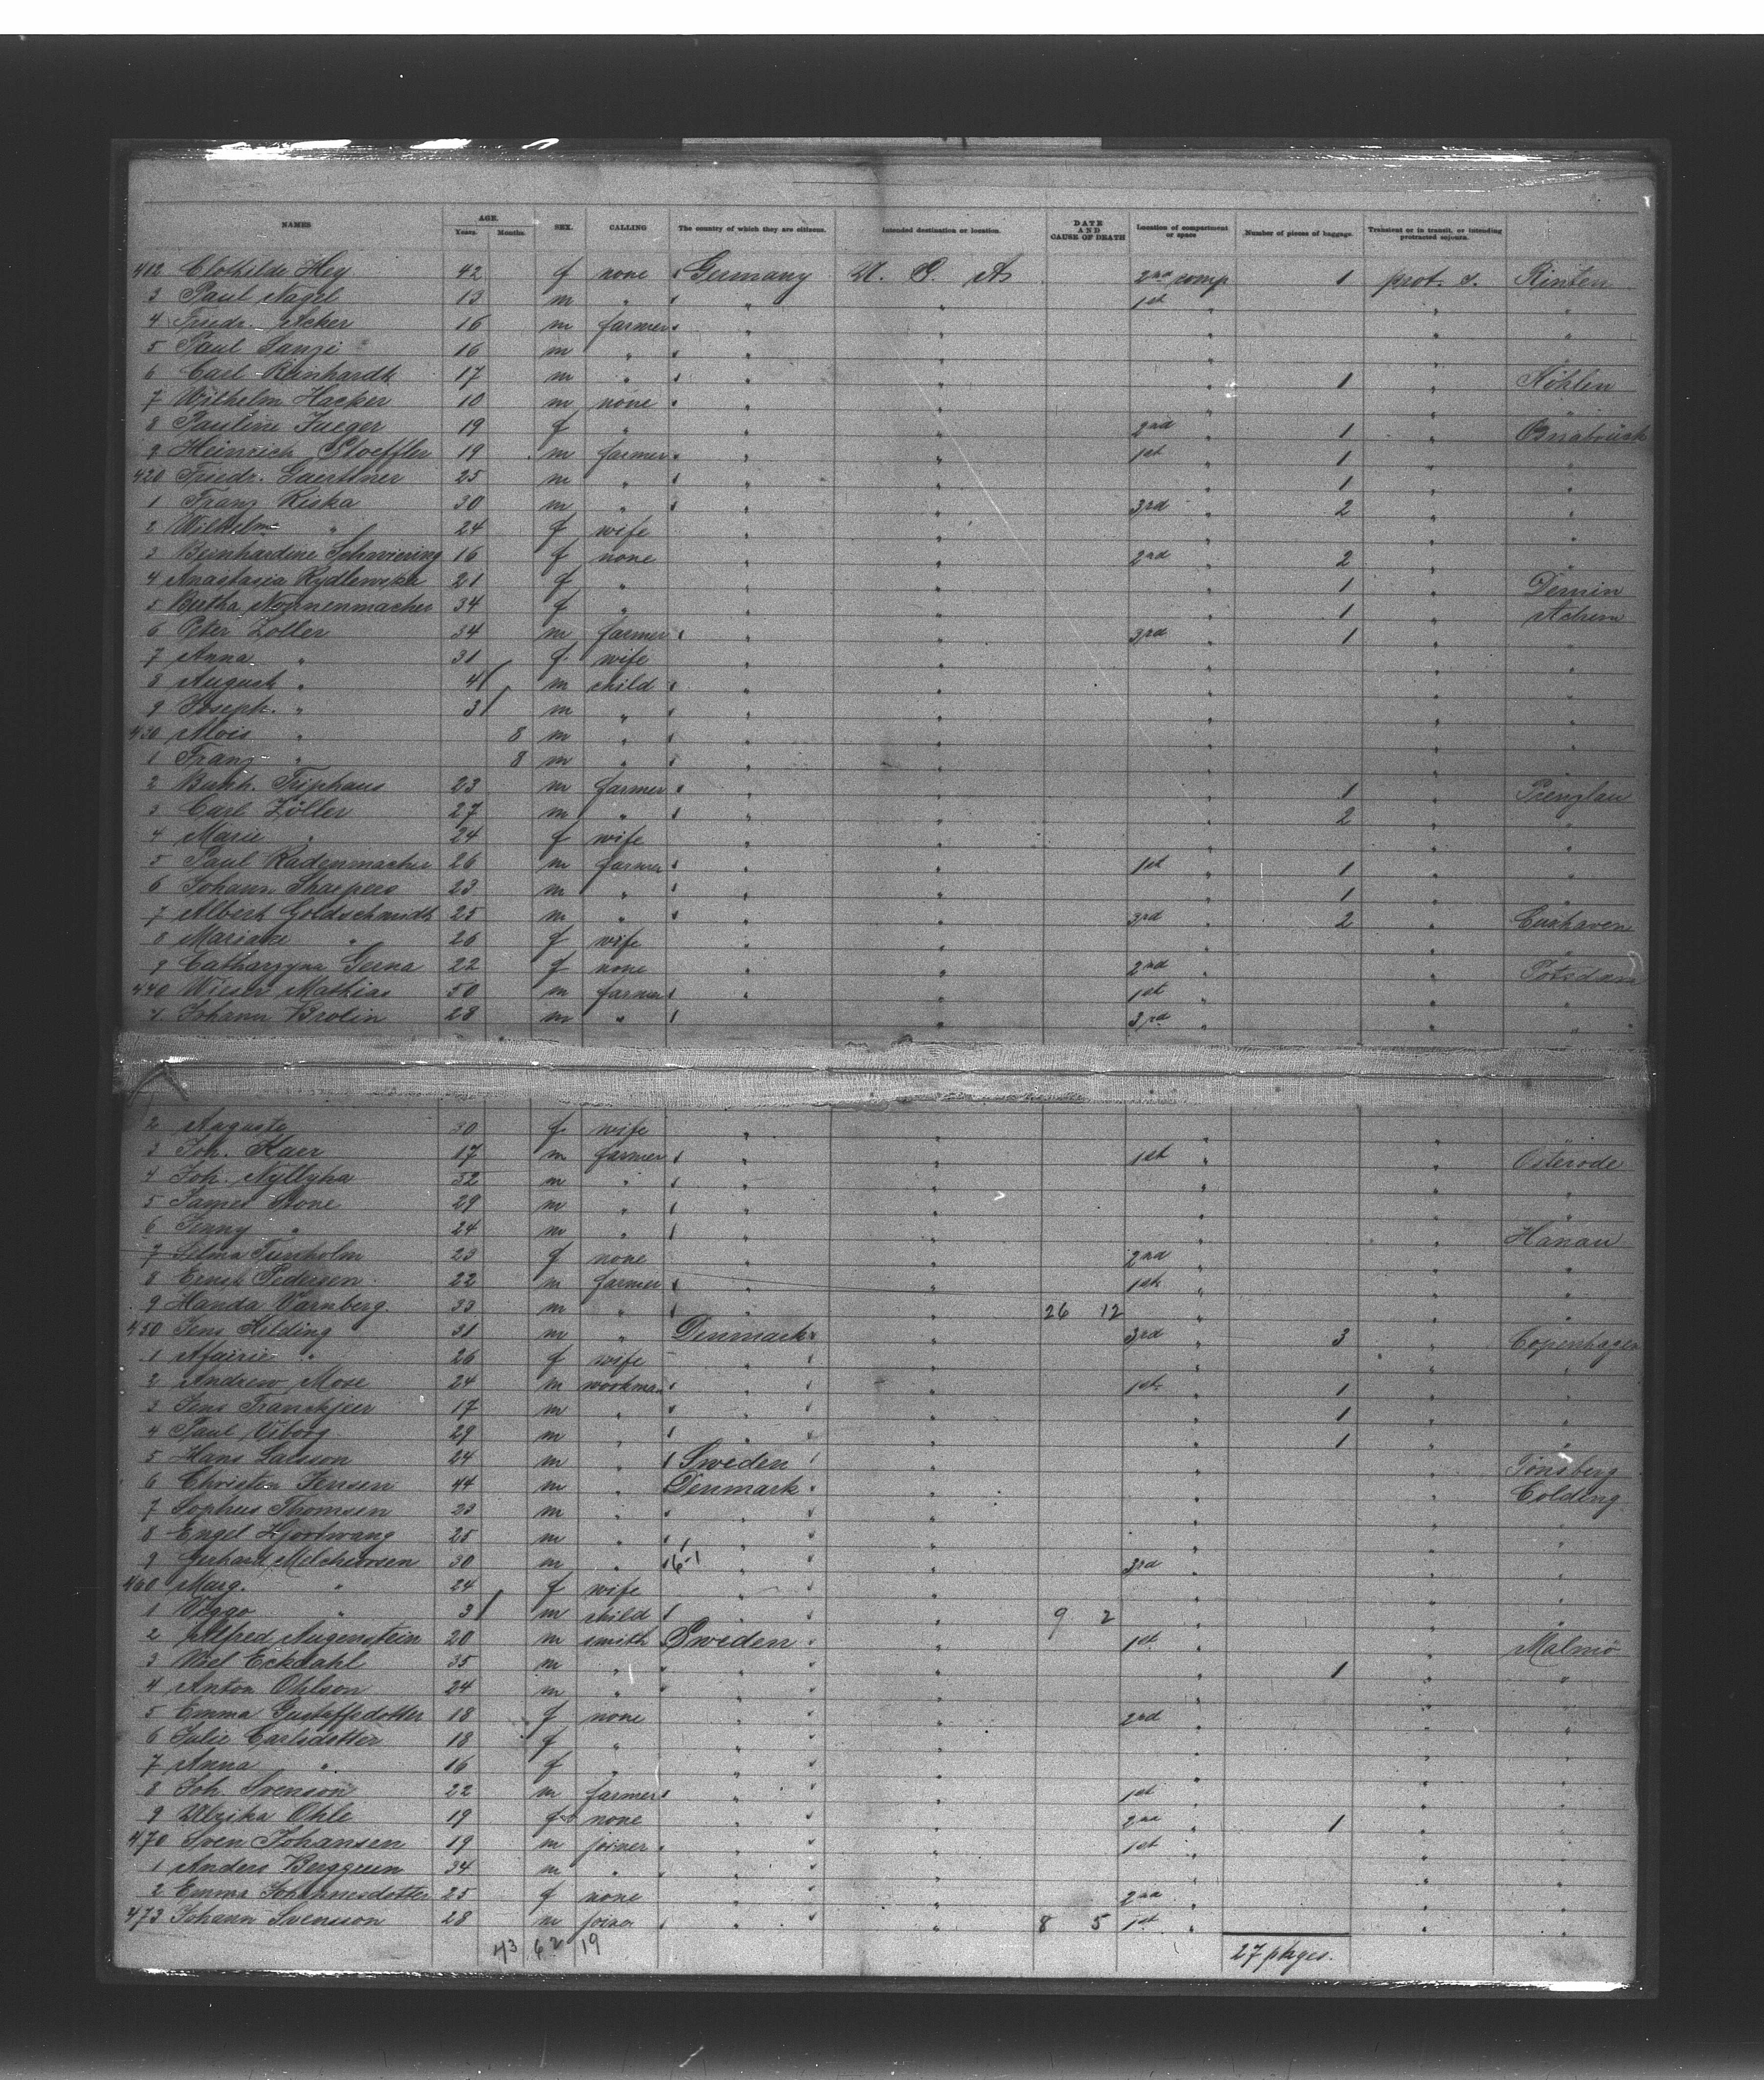 NAMES AGE. Years. Months. SEX. CALLING The country of which they are citizens. Intended destination or location. DATE AND CAUSE OF DEATH Location of compartment or space Number of pieces of baggage. Transient or in transit, or intending protracted sojourn.
412 Clothilde Hey 42 f none Germany U. S. A. 2nd comp 1 prot. s. Rinteln
3 Paul Nagel 13 m " " " 1st " " "
4 Friedr. Acker 16 m farmer " " " " "
5 Paul Lanzi 16 m " " " " "
6 Carl Reinhardt 17 m " " " " 1 " Köhlen
7 Wilhelm Hacker 10 m none " " " " "
8 Pauline Jaeger 19 f " " " 2nd " 1 " Osnabrück
9 Heinrich Stoeffler 19 m farmer " " 1st " 1 " "
420 Friedr. Gaerttner 25 m " " " " 1 " "
1 Franz Riska 30 m " " " 3rd " 2 " "
2 Wilhelm " 24 f wife " " " " "
3 Bernhardine Schwiering 16 f none " " 2nd " 2 " "
4 Anastasia Rydlewska 21 f " " " " 1 " Demin
5 Bertha Nonnenmacher 34 f " " " " 1 " Achim
6 Peter Zoller 34 m farmer " " 3rd " 1 " "
7 Anna " 31 f wife " " " " "
8 August " 4 m child " " " " "
9 Joseph " 3 m " " " " " "
430 Alois " 8 m " " " " " "
1 Franz " 8 m " " " " " "
2 Bernh. Triphaus 23 m farmer " " " 1 " Prenzlau
3 Carl Zöller 27 m " " " " 2 " "
4 Marie " 24 f wife " " " " "
5 Paul Radenmacher 26 m farmer " " 1st " 1 " "
6 Johann Shaepers 23 m " " " " 1 " "
7 Albert Goldschmidt 25 m " " " 3rd " 2 " Cuxhaven
8 Mariane " 26 f wife " " " " "
9 Catharzyna Gerna 22 f none " " 2nd " " Potsdam
440 Wieser Mathias 50 m farmer " " 1st " " "
1 Johann Brolin 28 m " " 3rd " " "
2 Auguste 30 f wife " " " " "
3 Joh. Kaer 17 m farmer " " 1st " " Osterode
4 Joh. Nyltyha 32 m " " " " " "
5 James Stone 29 m " " " " " "
6 Jenny " 24 m " " " " " Hanau
7 Selma Tunholm 23 f none " " 2nd " " "
8 Ernst Pedersen 22 m farmer " " 1st " " "
9 Handa Varnberg 33 m " " " 26 12 " " "
450 Jens Hilding 31 m " Denmark " 3rd " 3 " Copenhagen
1 " 26 f wife " " " " "
2 Andrew Mose 24 m workman " " 1st " 1 " "
3 Jens Tranekjeer 17 m " " " " 1 " "
4 Paul Viborg 29 m " " " " 1 " "
5 Hans Larsson 24 m " Sweden " " " Tönsberg
6 Christen Jensen 44 m " Denmark " " " Colding
7 Sophus Thomsen 23 m " " " " " "
8 Engel Hjortwang 25 m " " " " " "
9 Gerhard Melchiorsen 30 m " 6-1 " " 3rd " " "
460 Marg. " 24 f wife " " " " "
1 Viggo " 3 m child " " 9 2 " " "
2 Alfred Augenstein 20 m smith Sweden " 1st " " Malmö
3 Niel Eckdahl 35 m " " " " 1 " "
4 Anton Ohlson 24 m " " " " " "
5 Emma Gustafsdotter 18 f none " " 2nd " " "
6 Julie Carlsdotter 18 f " " " " " "
7 Anna " 16 f " " " " " "
8 Joh. Svenson 22 m farmer " " 1st " " "
9 Ulrika Ohle 19 f none " " 2nd " 1 " "
470 Sven Johansen 19 m joiner " " 1st " " "
1 Anders Berggren 34 m " " " " " "
2 Emma Johannesdotter 25 f none " " 2nd " " "
473 Johann Svensson 28 m joiner " " 8 5 1st " " "
43 62 19 27 pkges.